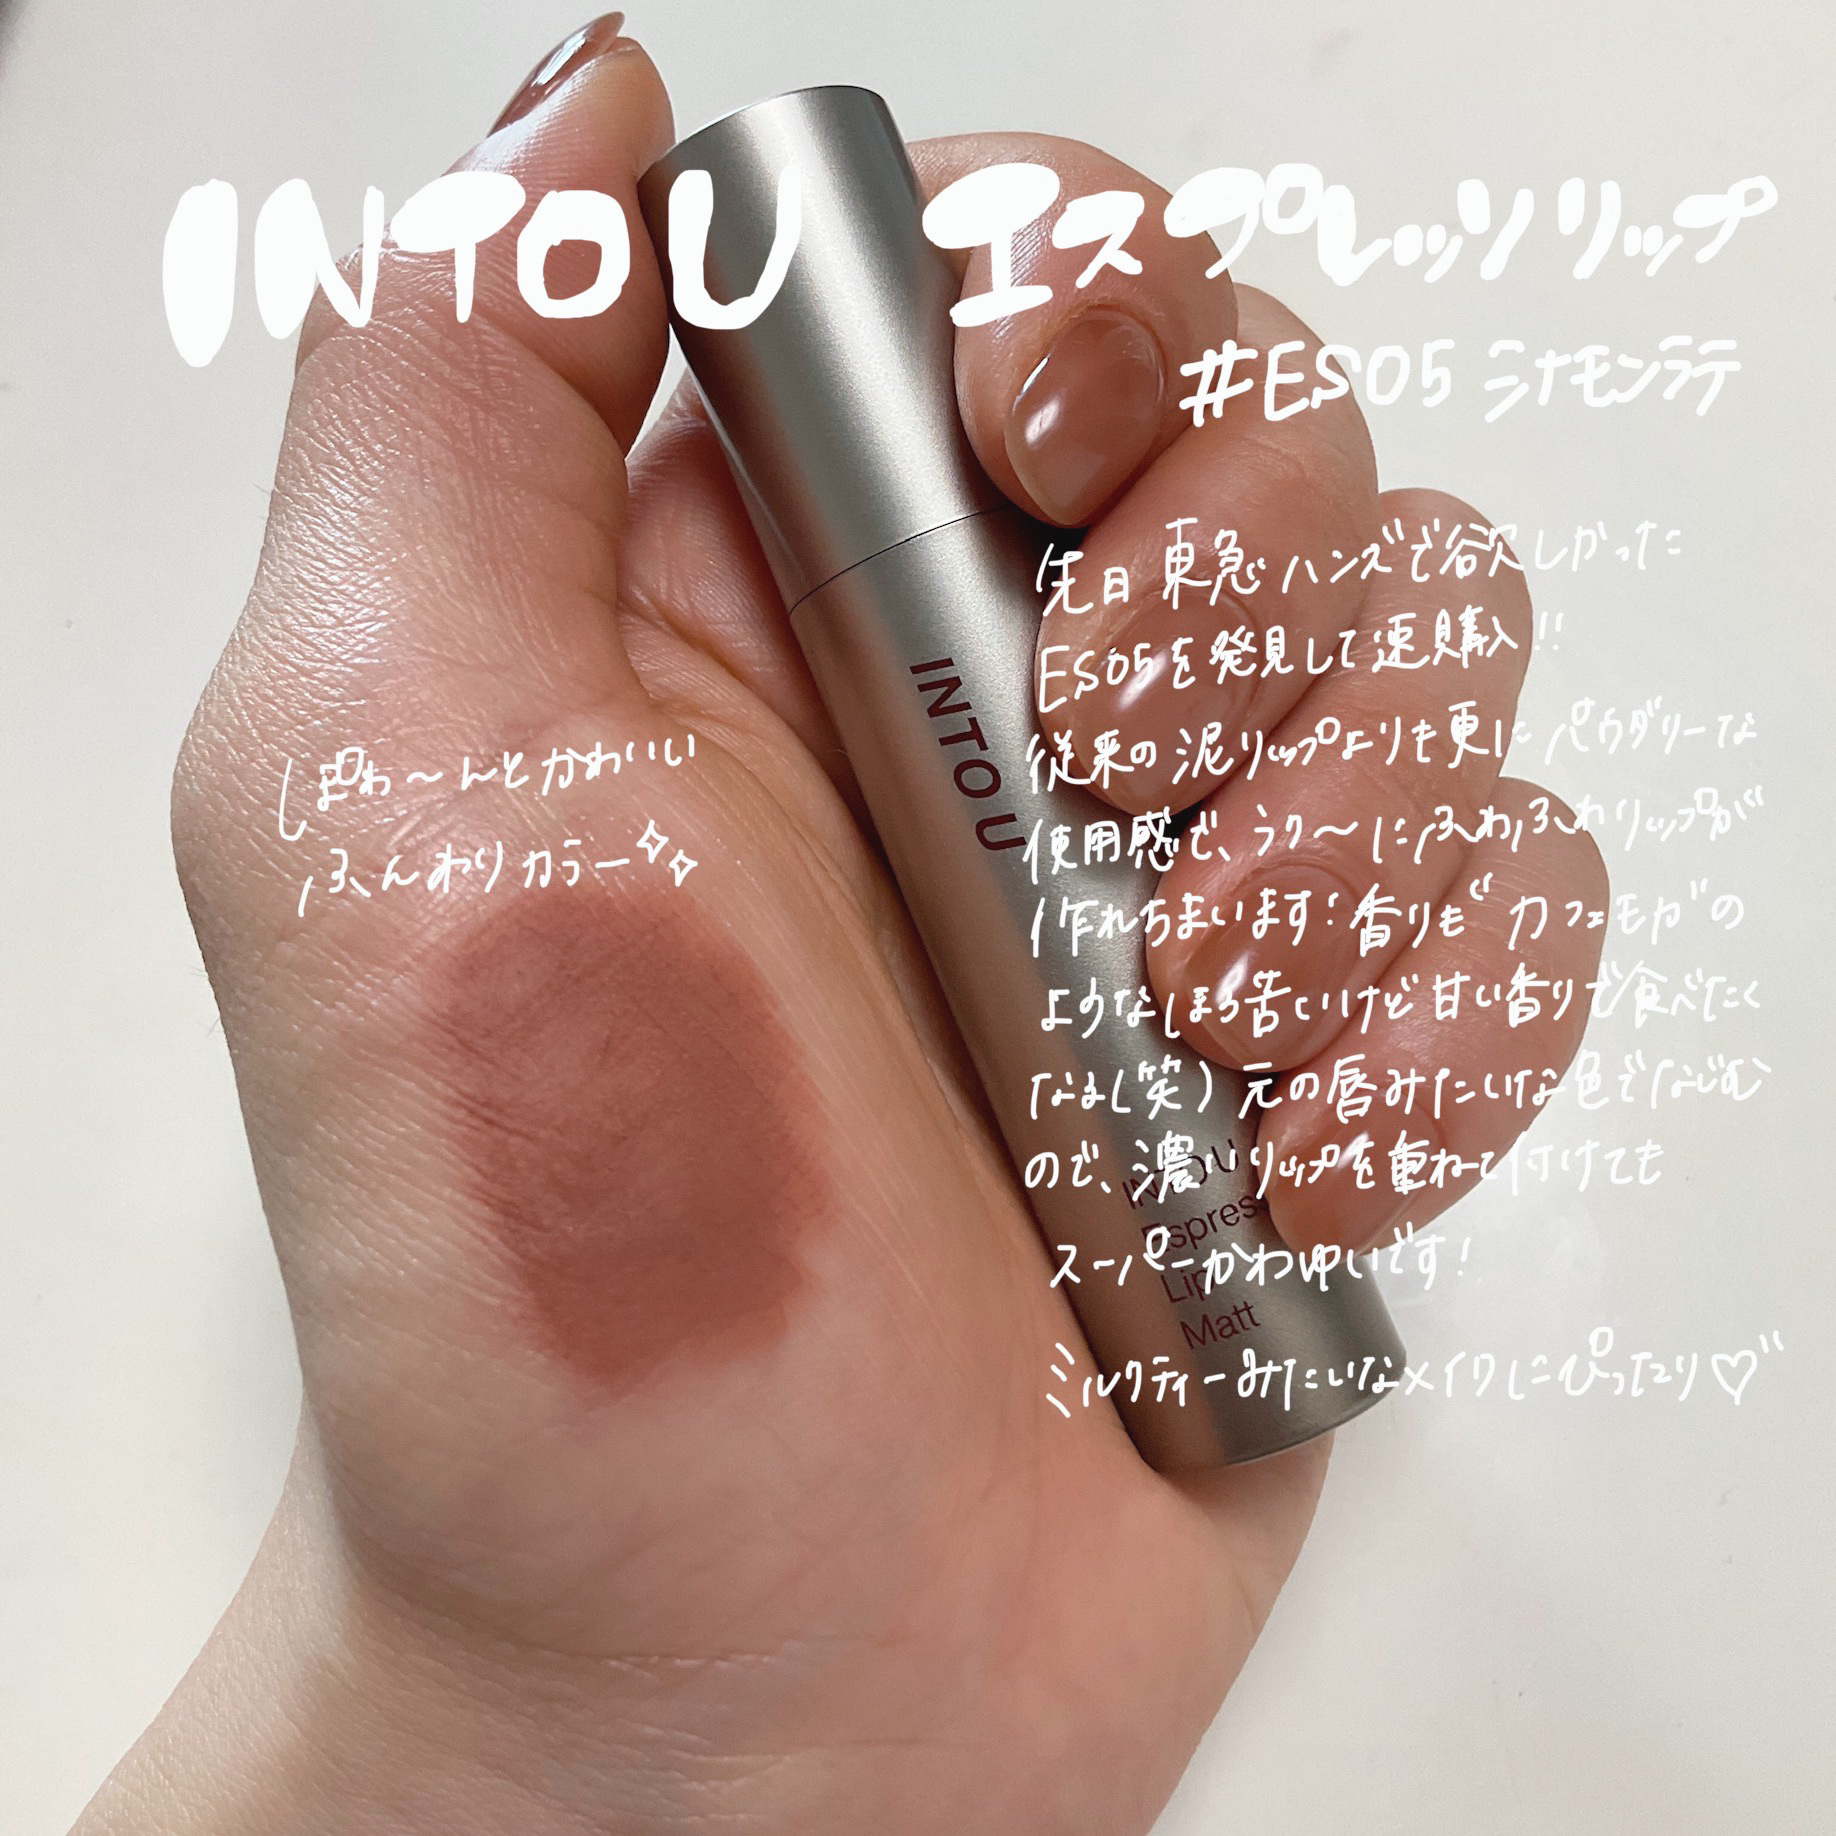 INTOU エスプレッソリップ
#ES05 シナモンラテ
先日 東急ハンズで欲しかった
ES05を発見して速購入!!
従来の泥リップよりも更にパウダリーな
使用感で、ラク〜にふわふわリップが
作れちまいます!香りも"カフェモカ"の
ようなほろ苦いけど甘い香りで食べたく
なる(笑) 元の唇みたいな色でなじむ
ので、濃いリップを重ねて付けても
スーパーかわゆいです!
ミルクティーみたいなメイクにぴったり♡"
ぽわ〜んとかわいい
ふんわりカラー
INTOU
INTOU
Espress
Lip
Matt